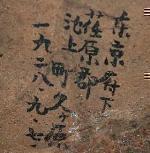 东京府下
荏原郡
池上町久ヶ原
一九二八.九.七